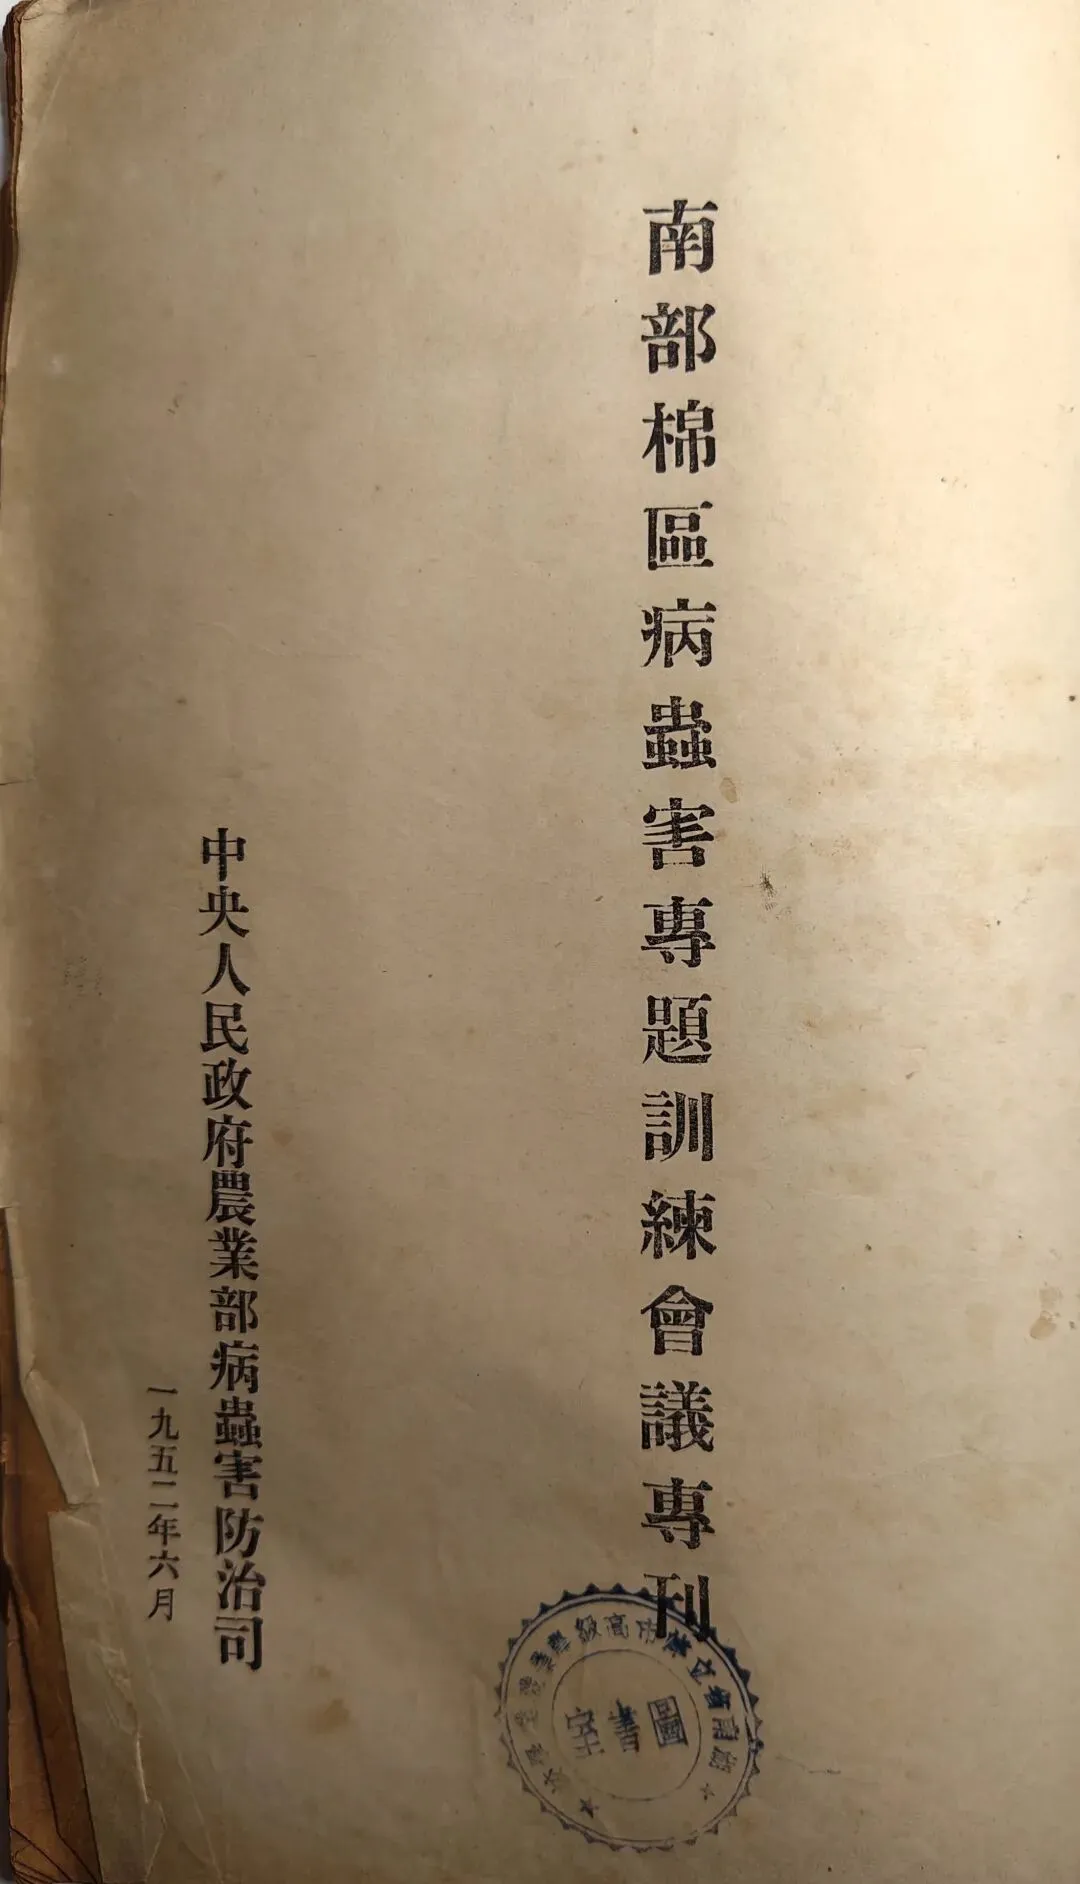 南部棉區病蟲害專題訓練會議專刊
中央人民政府農業部病蟲害防治司
一九五二年六月
圖書室